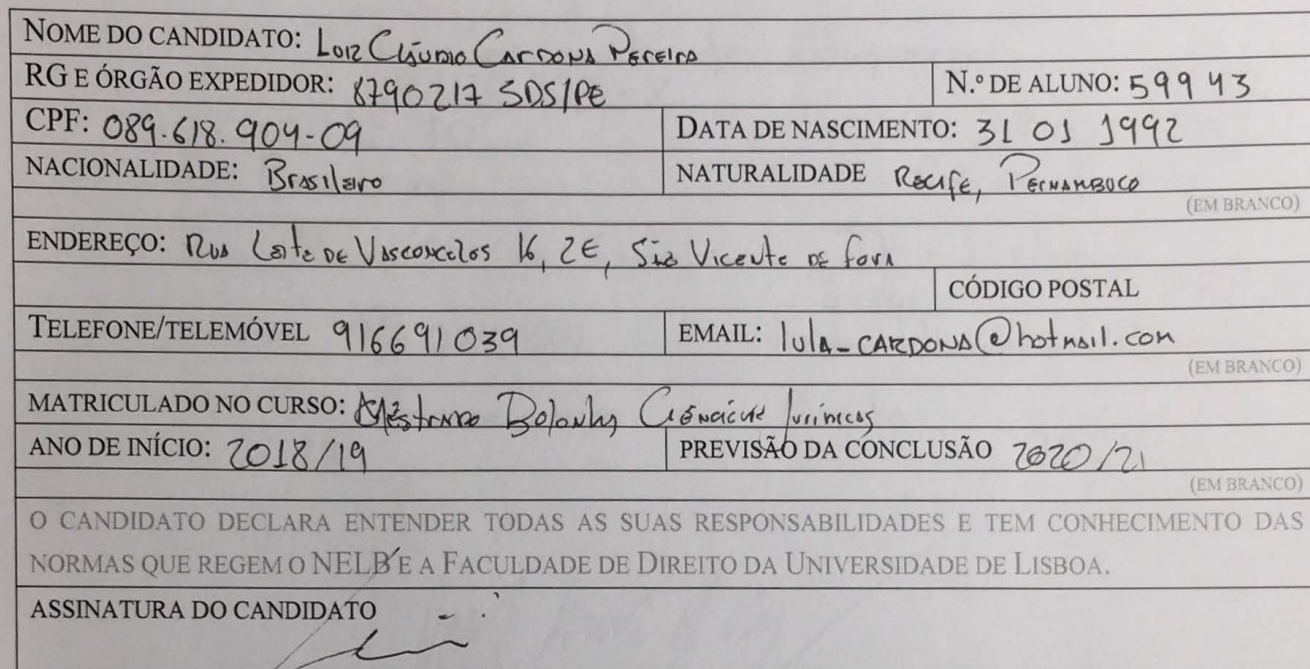 NOME DO CANDIDATO: Luiz Cláudio Cardona Pereira
RG E ÓRGÃO EXPEDIDOR: 8790217 SDS/PE N.º DE ALUNO: 59943
CPF: 089.618.904-09 DATA DE NASCIMENTO: 31 01 1992
NACIONALIDADE: Brasileiro NATURALIDADE Recife, Pernambuco
(EM BRANCO)
ENDEREÇO: Rua Leite de Vasconcelos 16, 2E, São Vicente de fora
CÓDIGO POSTAL
TELEFONE/TELEMÓVEL 916691039 EMAIL: lula_cardona@hotmail.com
(EM BRANCO)
MATRICULADO NO CURSO: Mestrado Bolonha Ciências Jurídicas
ANO DE INÍCIO: 2018/19 PREVISÃO DA CONCLUSÃO 2020/21
(EM BRANCO)
O CANDIDATO DECLARA ENTENDER TODAS AS SUAS RESPONSABILIDADES E TEM CONHECIMENTO DAS
NORMAS QUE REGEM O NELB E A FACULDADE DE DIREITO DA UNIVERSIDADE DE LISBOA.
ASSINATURA DO CANDIDATO